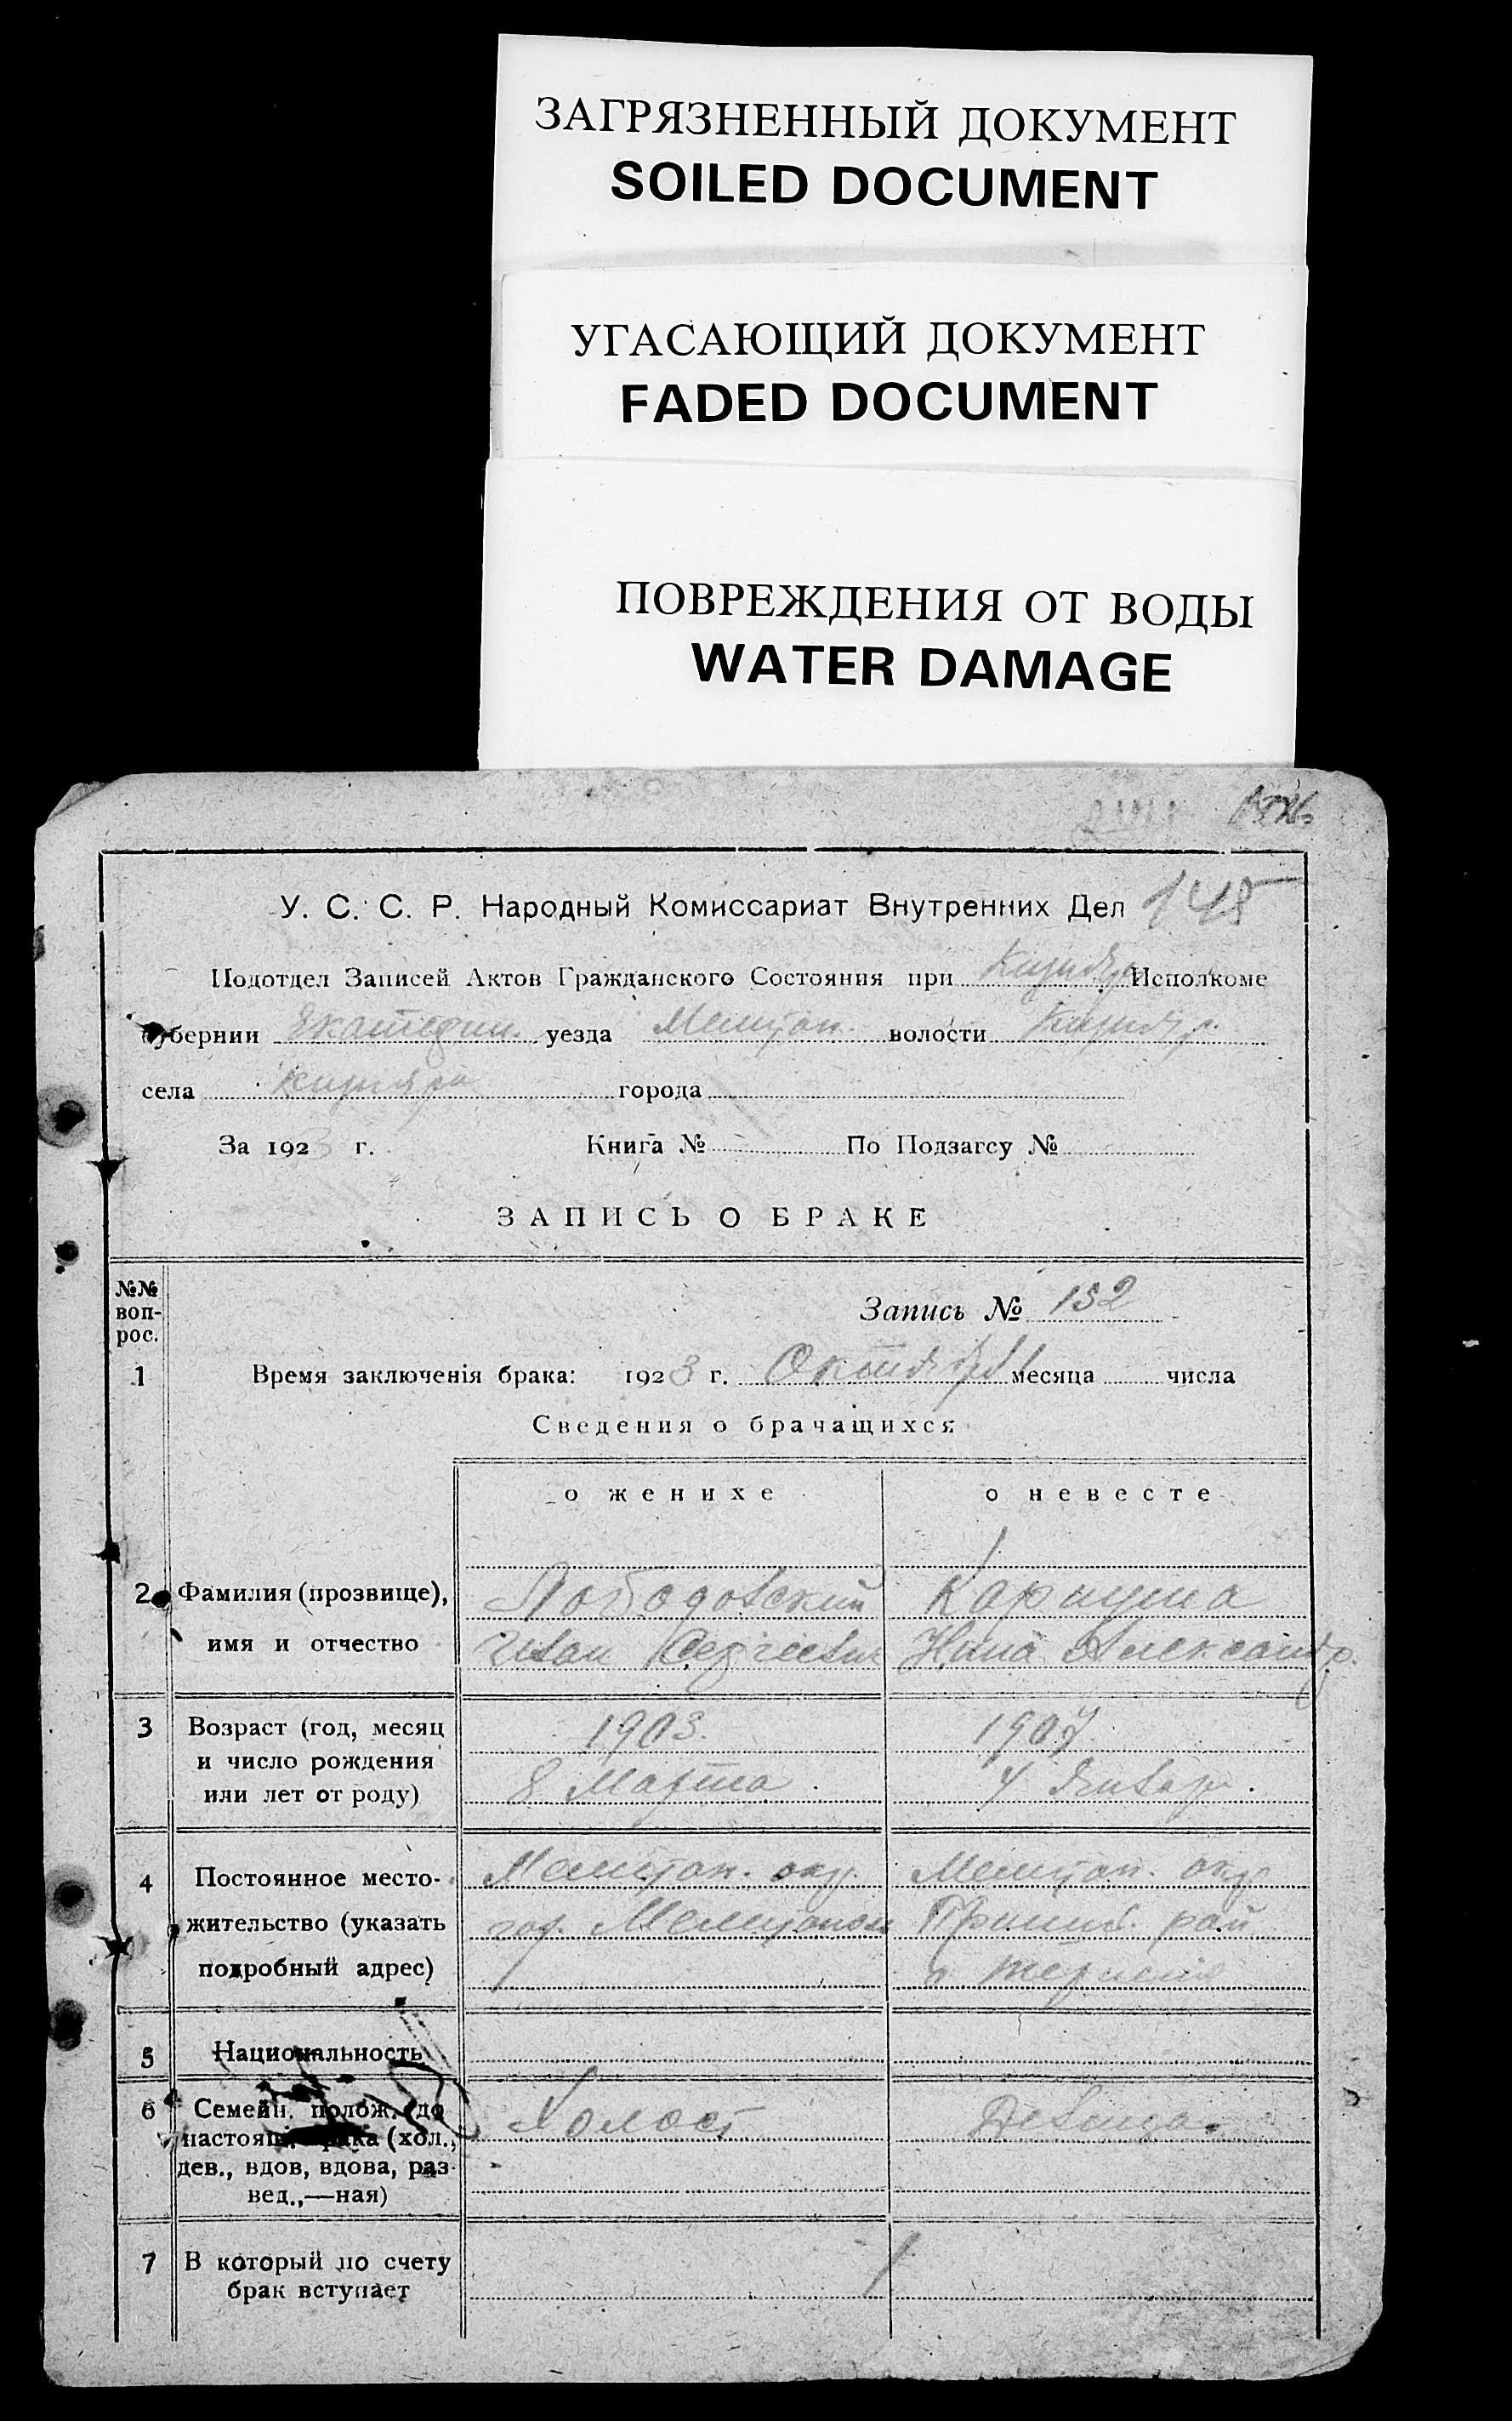 ЗАГРЯЗНЕННЫЙ ДОКУМЕНТ
SOILED DOCUMENT
УГАСАЮЩИЙ ДОКУМЕНТ
FADED DOCUMENT
ПОВРЕЖДЕНИЯ ОТ ВОДЫ
WATER DAMAGE
У. С. С. Р. Народный Комиссариат Внутренних Дел 148
Подотдел Записей Актов Гражданского Состояния при Исполкоме
губернии Екатерин. уезда Мелитоп. волости
села города
За 1923 г. Книга № По Подзагсу №
ЗАПИСЬ О БРАКЕ
№№ воп-
рос.
Запись № 152
1 Время заключенія брака: 1923 г. Октября месяца числа
Сведения о брачащихся
о женихе о невесте
2 Фамилия (прозвище), Лободовский
имя и отчество Иван Сергеевич Нина Александр.
3 Возраст (год, месяц 1903. 1907
и число рождения
или лет от роду) 8 Марта. 4 Январ.
4 Постоянное место- Мелитоп. окр. Мелитоп. окр
жительство (указать гор. Мелитополь Пришиб. рай
подробный адрес)
5 Национальность
6 Семейн. полож. (до Холост Девица
настоящ. брака (хол.,
дев., вдов, вдова, раз-
вед.,—ная)
7 В который по счету
брак вступает